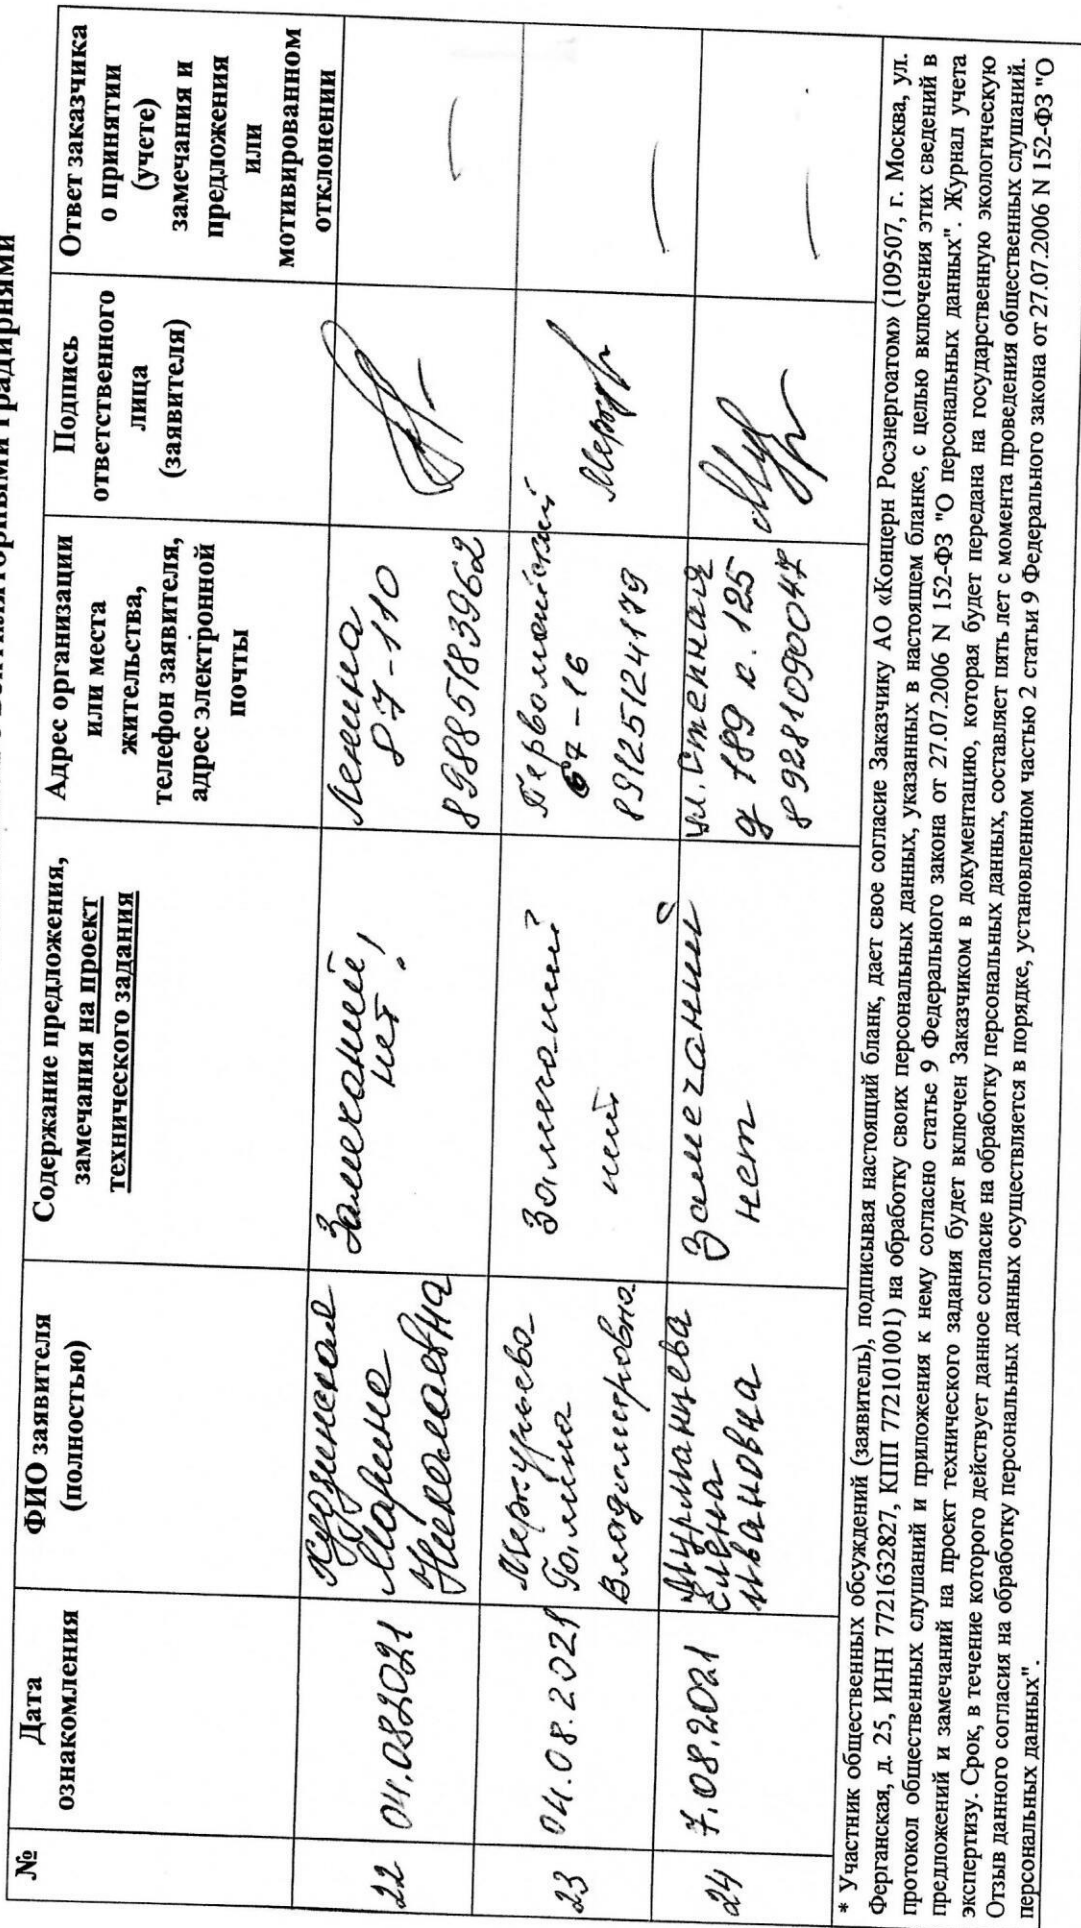 вентиляторными градирнями
№
Дата
ознакомления
ФИО заявителя
(полностью)
Содержание предложения,
замечания на проект
технического задания
Адрес организации
или места
жительства,
телефон заявителя,
адрес электронной
почты
Подпись
ответственного
лица
(заявителя)
Ответ заказчика
о принятии
(учете)
замечания и
предложения
или
мотивированном
отклонении
22
04.08.2021
Марина
Николаевна
Замечаний
нет!
Ленина
87-110
89885183962
—
23
04.08.2021
Меркурьева
Галина
Владимировна
Замечаний
нет
Первомайский
67-16
89125124179
—
24
7.08.2021
Мурманцева
Елена
Ивановна
Замечаний
нет
ул. Степная
д 189 к. 125
89281090047
—
* Участник общественных обсуждений (заявитель), подписывая настоящий бланк, дает свое согласие Заказчику АО «Концерн Росэнергоатом» (109507, г. Москва, ул.
Ферганская, д. 25, ИНН 7721632827, КПП 772101001) на обработку своих персональных данных, указанных в настоящем бланке, с целью включения этих сведений в
протокол общественных слушаний и приложения к нему согласно статье 9 Федерального закона от 27.07.2006 N 152-ФЗ "О персональных данных". Журнал учета
предложений и замечаний на проект технического задания будет включен Заказчиком в документацию, которая будет передана на государственную экологическую
экспертизу. Срок, в течение которого действует данное согласие на обработку персональных данных, составляет пять лет с момента проведения общественных слушаний.
Отзыв данного согласия на обработку персональных данных осуществляется в порядке, установленном частью 2 статьи 9 Федерального закона от 27.07.2006 N 152-ФЗ "О
персональных данных".